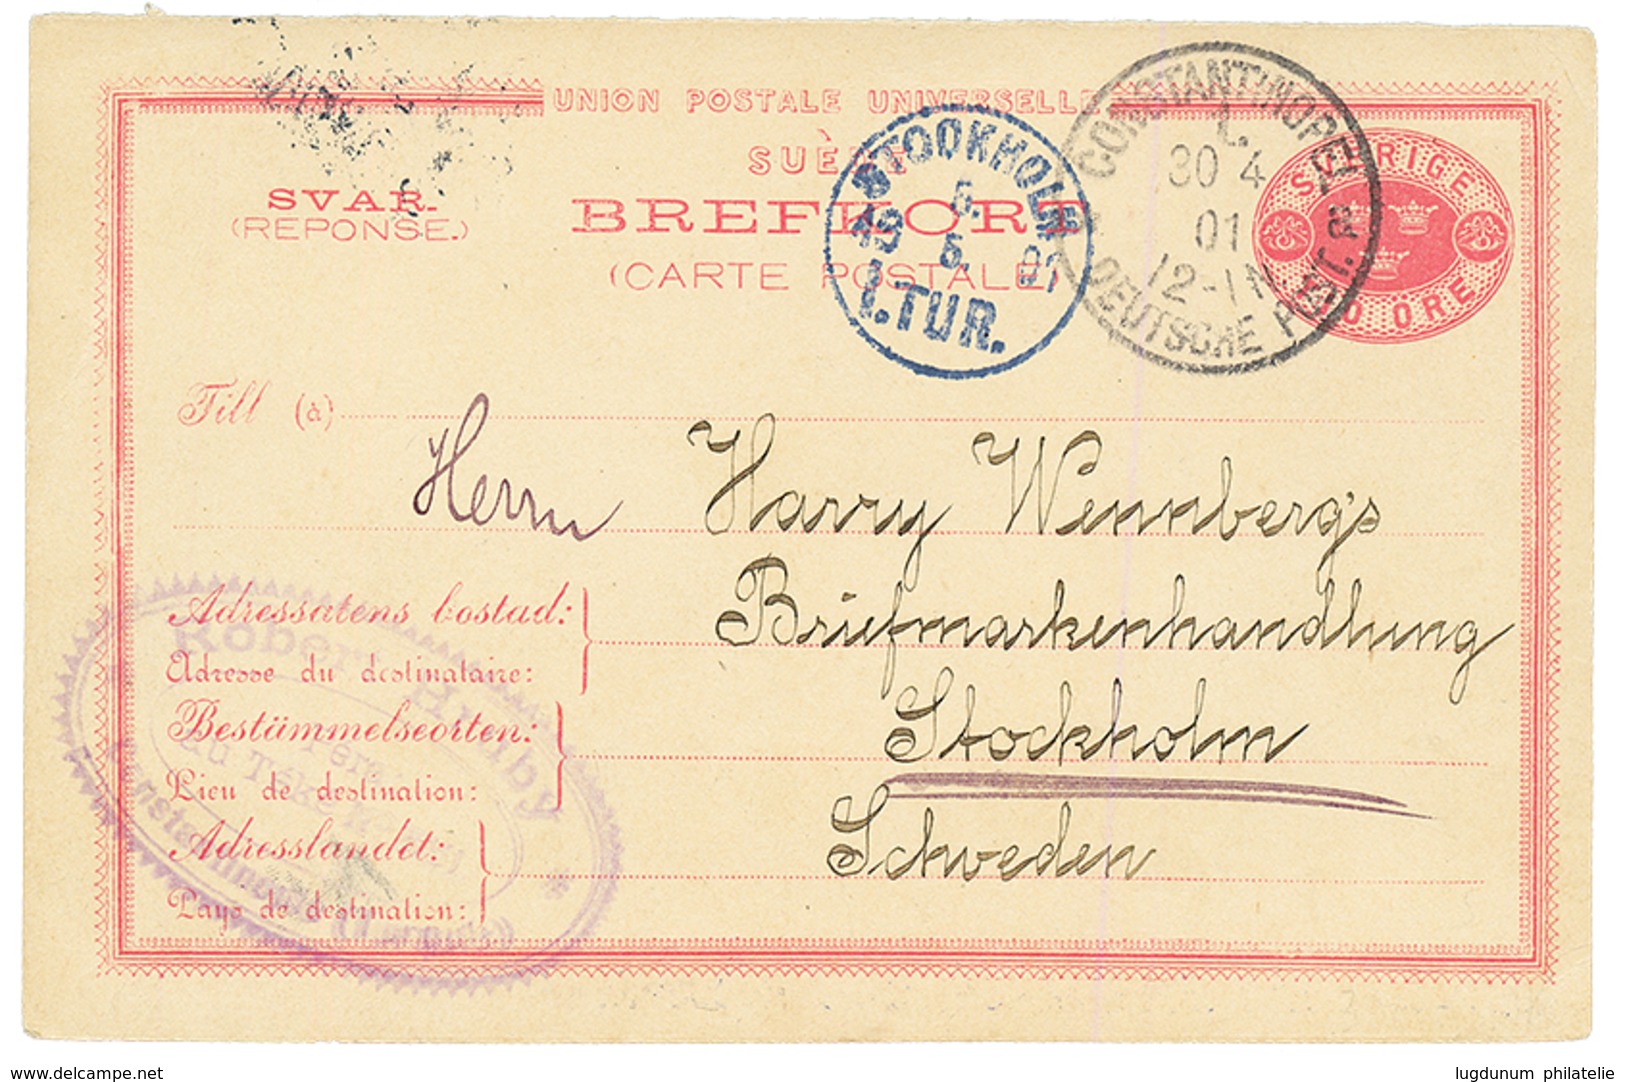 UNION POSTALE UNIVERSELLE
SUÈDE
SVAR.
(REPONSE.)
BREFKORT
(CARTE POSTALE)
STOCKHOLM
5.
19 5. 01
1.TUR.
CONSTANTINOPEL
1.
30 4
01
12-1N
DEUTSCHE POST.
SVERIGE
ÖRE
Till (à)
Herrn Harry Wennbergs
Briefmarkenhandlung
Stockholm
Schweden
Adressatens bostad:
Adresse du destinataire:
Bestämmelseorten:
Lieu de destination:
Adresslandet:
Pays de destination:
Robert
www.delcampe.net
lugdunum philatelie